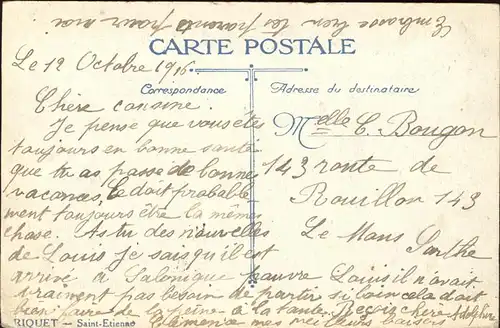 Embrasse bien tes parents pour moi
CARTE POSTALE
Le 12 Octobre 1916
Correspondance
Adresse du destinataire
Chère cousine.
Je pense que vous êtes
toujours en bonne santé
que tu as passé de bonnes
vacances, Ce doit probable
ment toujours être la même
chose. As tu des nouvelles
de Louis je sais qu'il est
arrivé à Salonique pauvre Louis il n'avait
vraiment pas besoin de partir si loin cela doit
bien faire de la peine à la tante. Reçois chère
Clémence mes meilleurs baisers
Melle C. Bougon
143 route de
Rouillon 143
Le Mans Sarthe
RIQUET — Saint-Etienne